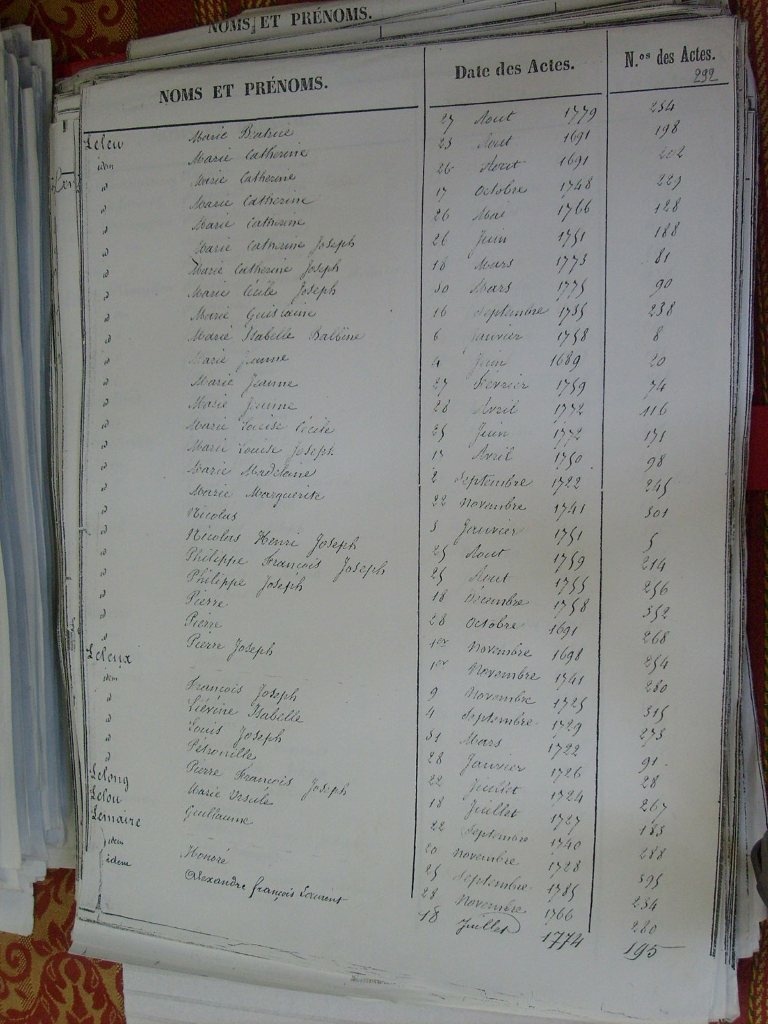 NOMS ET PRÉNOMS.
NOMS ET PRÉNOMS. Date des Actes. N.os des Actes.
292
Leleu Marie Beatrice 27 Aout 1779 254
idem Marie Catherine 23 Aout 1691 198
d Marie Catherine 26 Aout 1691 202
d Marie Catherine 17 Octobre 1748 229
d Marie Catherine 26 Mai 1766 128
d Marie Catherine Joseph 26 Juin 1751 188
d Marie Catherine Joseph 18 Mars 1773 81
d Marie Cécile Joseph 30 Mars 1775 90
d Marie Guislaine 16 Septembre 1735 238
d Marie Isabelle Balbine 6 Janvier 1758 8
d Marie Jeanne 4 Juin 1689 20
d Marie Jeanne 27 Février 1759 74
d Marie Jeanne 28 Avril 1772 116
d Marie Louise Cécile 25 Juin 1772 171
d Marie Louise Joseph 17 Avril 1750 98
d Marie Madelaine 2 Septembre 1722 245
d Marie Marguerite 22 Novembre 1741 301
d Nicolas 3 Janvier 1751 5
d Nicolas Henri Joseph 25 Aout 1759 214
d Philippe François Joseph 25 Aout 1755 256
d Philippe Joseph 18 Decembre 1758 352
d Pierre 28 Octobre 1691 268
d Pierre 1er Novembre 1698 254
d Pierre Joseph 1er Novembre 1741 280
Leleux 9 Novembre 1725 315
idem François Joseph 4 Septembre 1729 273
d Liévine Isabelle 31 Mars 1722 91
d Louis Joseph 28 Janvier 1726 28
d Pétronille 22 Juillet 1724 267
d Pierre François Joseph 18 Juillet 1727 183
Lelong Marie Ursule 22 Septembre 1740 288
Lelou Guillaume 20 Novembre 1728 395
Lemaire 25 Septembre 1785 234
idem Honoré 28 Novembre 1766 280
idem Alexandre françois Laurent 18 Juillet 1774 195